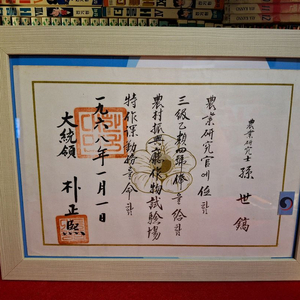 農業研究士 孫世鎬
農業研究官에 任함
三級乙類四號俸을 給함
農村振興廳作物試驗場
特作課 勤務를 命함
一九六八年一月一日
大統領 朴正熙